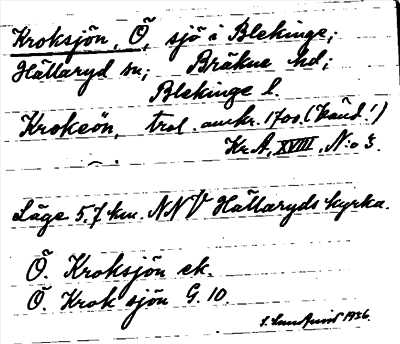 Kroksjön, Ö, sjö i Blekinge;
Hällaryd sn; Bräkne hd;
Blekinge l.
Krokeön, trol. omkr. 1700 (Känd!)
Kr.A, XVIII, N:o 3.
Läge 5,7 km. NNV Hällaryds kyrka.
Ö. Kroksjön ek.
Ö. Kroksjön G. 10.
S. Lundquist 1936.